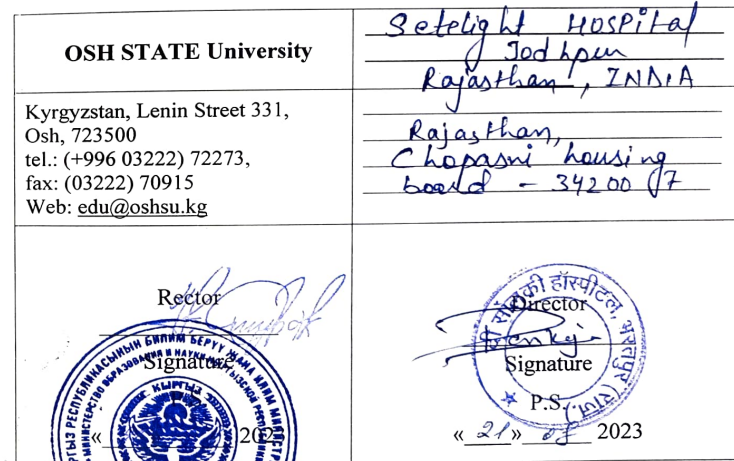 OSH STATE University
Setelight HOSPital
Jodhpur
Rajasthan, INDIA
Kyrgyzstan, Lenin Street 331,
Osh, 723500
tel.: (+996 03222) 72273,
fax: (03222) 70915
Web: edu@oshsu.kg
Rajasthan,
Chopasni housing
board - 34200
Rector
Signature
P.S.
« » 202
КЫРГЫЗ РЕСПУБЛИКАСЫНЫН БИЛИМ БЕРҮҮ ЖАНА ИЛИМ МИНИСТР
МИНИСТЕРСТВО ОБРАЗОВАНИЯ И НАУКИ КЫРГЫЗСКОЙ РЕСПУБЛИКИ
КЫРГЫЗ
Director
Signature
P.S.
«21» 2023
सोलंकी हॉस्पीटल, भरतपुर (राज.)